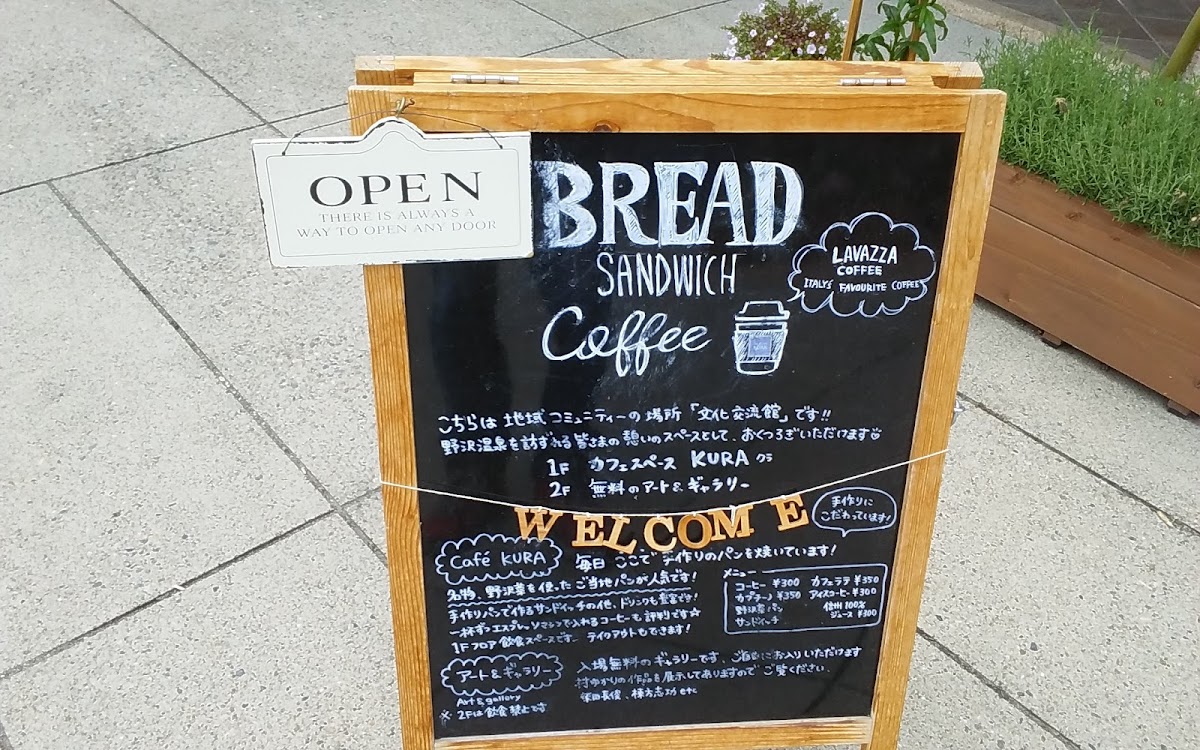 OPEN
THERE IS ALWAYS A
WAY TO OPEN ANY DOOR
BREAD
SANDWICH
Coffee
LAVAZZA
COFFEE
ITALY'S FAVOURITE COFFEE
こちらは 地域コミュニティーの場所「文化交流館」です!!
野沢温泉を訪ずれる皆さまの憩いのスペースとして、おくつろぎいただけます
1F カフェスペース KURA クラ
2F 無料のアート&ギャラリー
WELCOME
手作りに
こだわっています!
Café KURA
毎日 ここで手作りのパンを焼いています!
名物、野沢菜を使ったご当地パンが人気です!
手作りパンで作るサンドイッチの他、ドリンクも豊富です!
一杯ずつエスプレッソマシンで入れるコーヒーも評判です☆
1Fフロア飲食スペースです。テイクアウトもできます!
メニュー
コーヒー ¥300 カフェラテ ¥350
カプチーノ ¥350 アイスコーヒー ¥300
野沢菜パン 信州100%
サンドイッチ ジュース ¥300
アート&ギャラリー
Art & gallery
※ 2Fは飲食禁止です
入場無料のギャラリーです、ご自由にお入りいただけます
村ゆかりの作品を展示してありますので ご覧ください。
棟方志功 etc